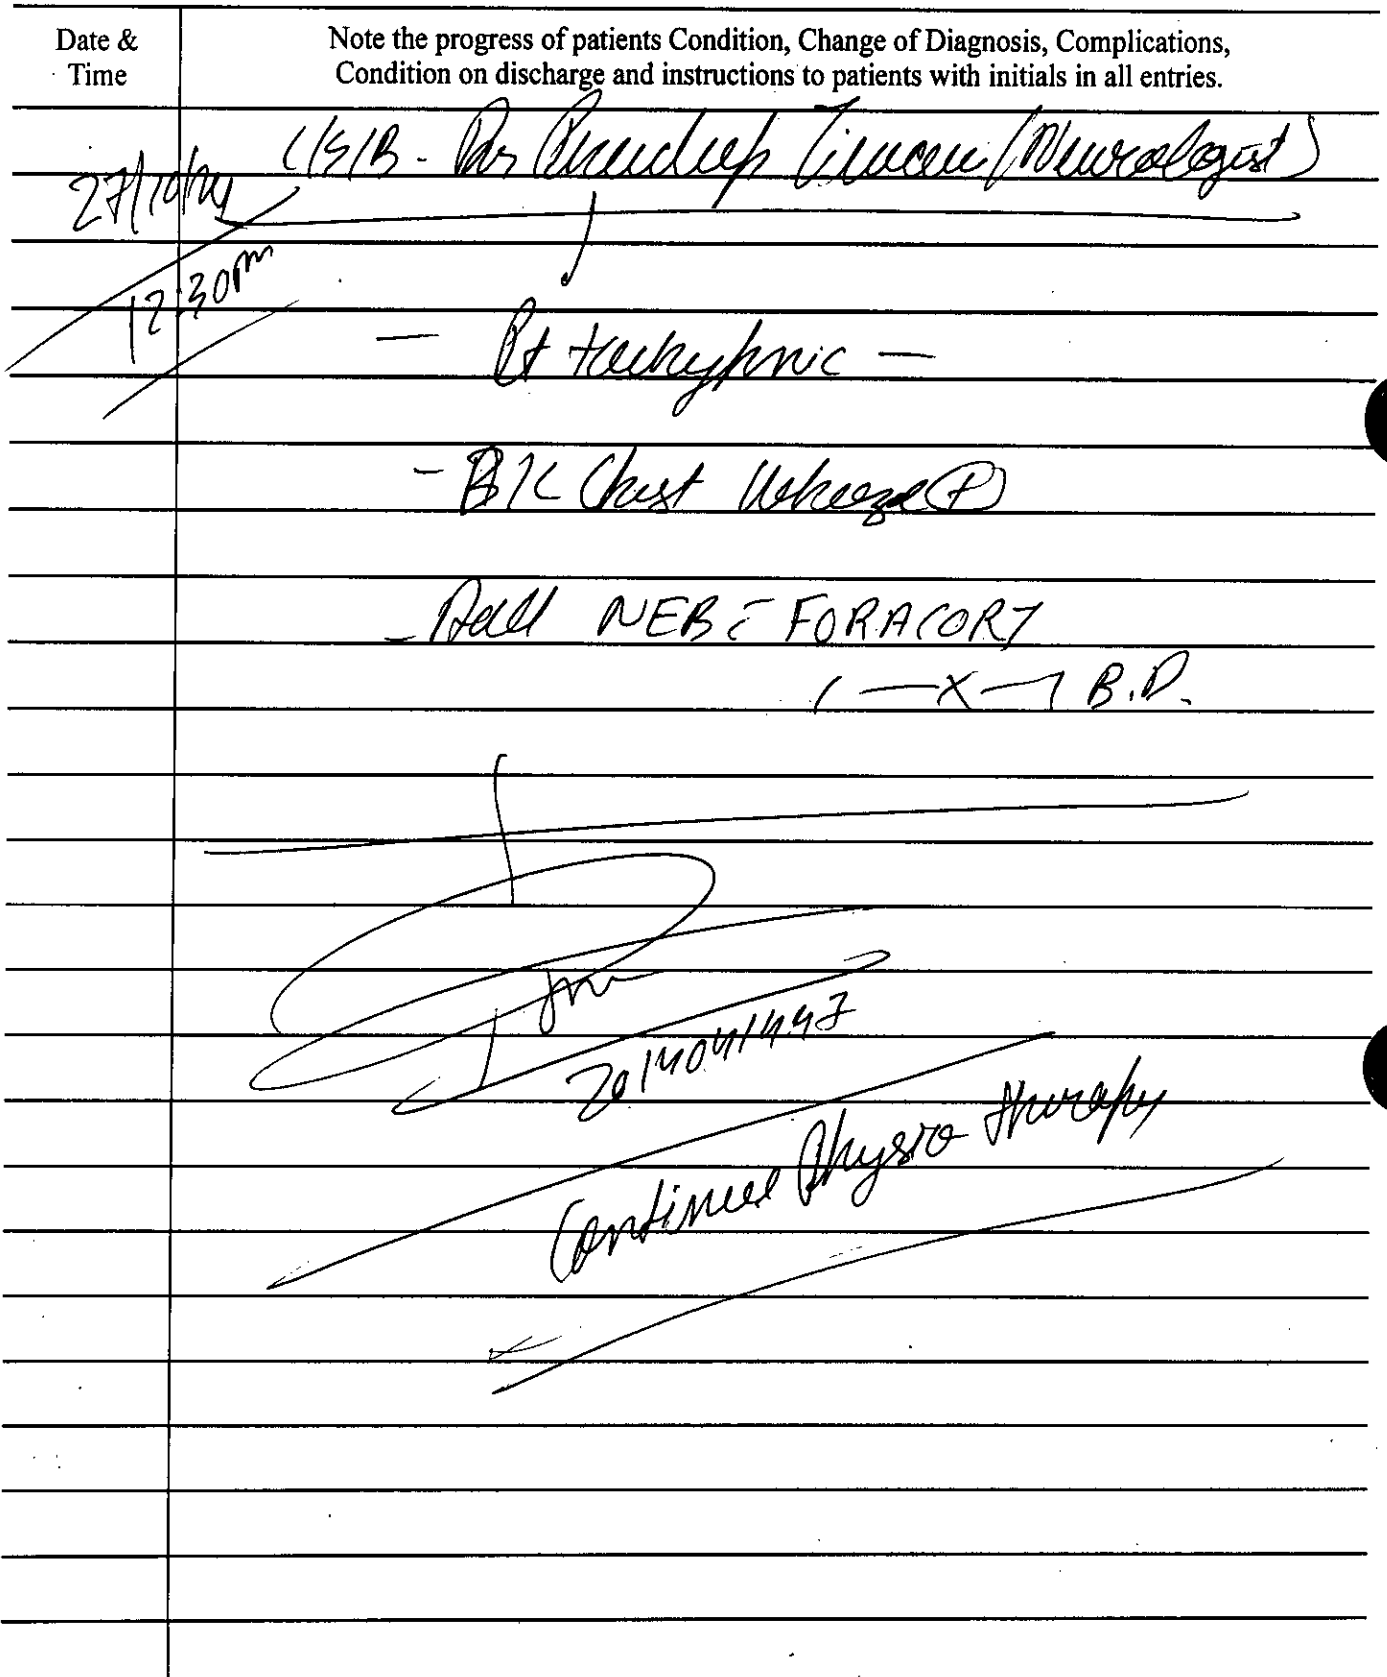 Date & Time
Note the progress of patients Condition, Change of Diagnosis, Complications,
Condition on discharge and instructions to patients with initials in all entries.
27/10/24
C/S/B - (Neurologist)
12:30pm
— Pt tachypnic —
- B/L Chest Wheeze (+)
- Add NEB c̄ FORACORT
1 —x— 1 B.D.
Continue Physio therapy